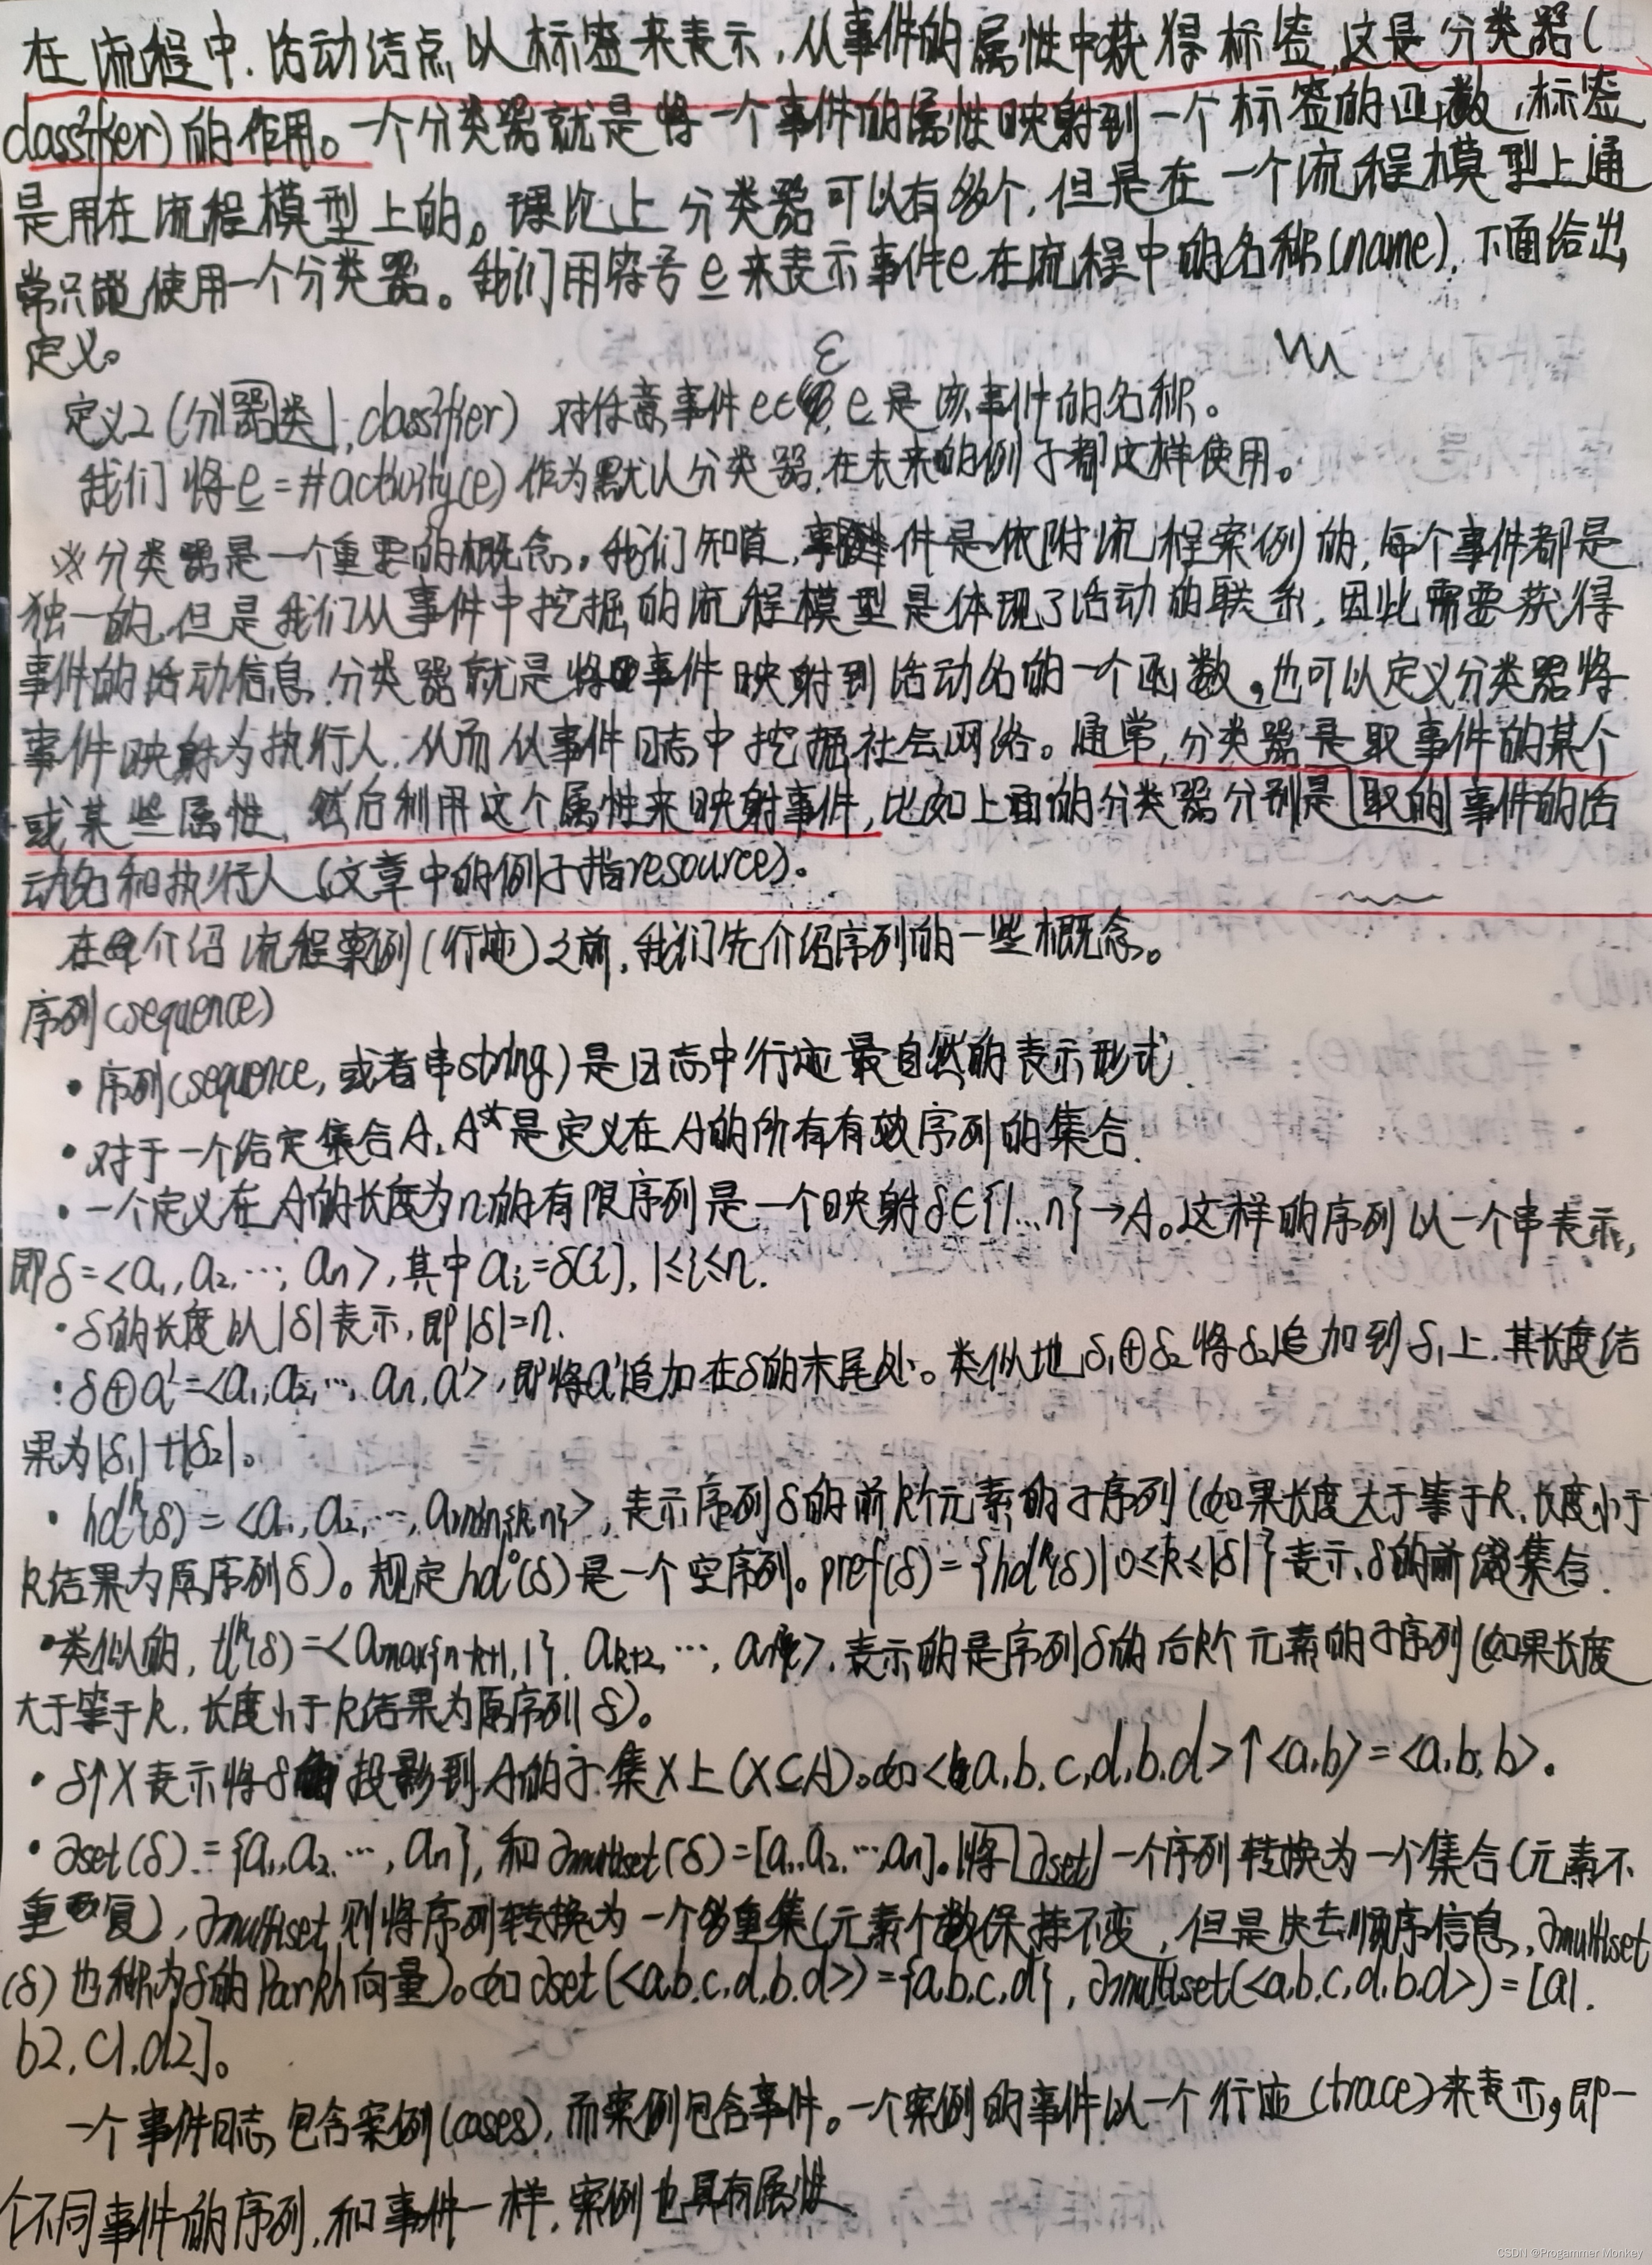 在流程中.活动结点以标签来表示,从事件的属性中获得标签,这是分类器(
classifier)的作用。一个分类器就是将一个事件的属性映射到一个标签的函数,标签
是用在流程模型上的。理论上分类器可以有多个,但是在一个流程模型上通
常只能使用一个分类器。我们用符号e来表示事件e在流程中的名称(name),下面给出
定义。
ε
定义2(分器类,classifier) 对任意事件e∈ e是该事件的名称。
我们将e=#activity(e)作为默认分类器,在未来的例子都这样使用。
※分类器是一个重要的概念。我们知道,事件是依附流程案例的,每个事件都是
独一的,但是我们从事件中挖掘的流程模型是体现了活动的联系,因此需要获得
事件的活动信息,分类器就是将事件映射到活动名的一个函数。也可以定义分类器将
事件映射为执行人,从而从事件日志中挖掘社会网络。通常,分类器是取事件的某个
或某些属性,然后利用这个属性来映射事件,比如上面的分类器分别是取的事件的活
动名和执行人(文章中的例子指resource)。
在介绍流程案例(行迹)之前,我们先介绍序列的一些概念。
序列(sequence)
• 序列(sequence,或者串string)是日志中行迹最自然的表示形式.
• 对于一个给定集合A,A*是定义在A的所有有效序列的集合.
• 一个定义在A的长度为n的有限序列是一个映射δ∈{1...n}→A。这样的序列以一个串表示,
即δ=<a1,a2,…,an>,其中ai=δ(i),1≤i≤n.
• δ的长度以|δ|表示,即|δ|=n.
• δ⊕a'=<a1,a2,…,an,a'>,即将a'追加在δ的末尾处。类似地δ1⊕δ2将δ2追加到δ1上.其长度结
果为|δ1|+|δ2|。
• hd^k(δ)=<a1,a2,…,amin{k,n}>,表示序列δ的前k个元素的子序列(如果长度大于等于k,长度小于
k结果为原序列δ)。规定hd^0(δ)是一个空序列。pref(δ)={hd^k(δ)|0≤k≤|δ|}表示δ的前缀集合.
•类似的,tl^k(δ)=<amax{n-k+1,1},ak+2,…,an>,表示的是序列δ的后k个元素的子序列(如果长度
大于等于k,长度小于k结果为原序列δ)。
• δ↑X表示将δ投影到A的子集X上(X⊆A)。如<a,b.c,d,b.d>↑<a,b>=<a,b,b>.
• ∂set(δ)={a1,a2,…,an},和∂multiset(δ)=[a1,a2,…,an]。将∂set一个序列转换为一个集合(元素不
重复),∂multiset则将序列转换为一个多重集(元素个数保持不变,但是失去顺序信息,∂multiset
(δ)也称为δ的Parikh向量)。如∂set(<a.b.c,d,b.d>)={a,b,c,d},∂multiset(<a.b.c,d.b.d>)=[a1.
b2,c1,d2]。
一个事件日志包含案例(cases),而案例包含事件。一个案例的事件以一个行迹(trace)来表示,即一
个不同事件的序列,和事件一样,案例也具有属性
CSDN @Progammer Monkey